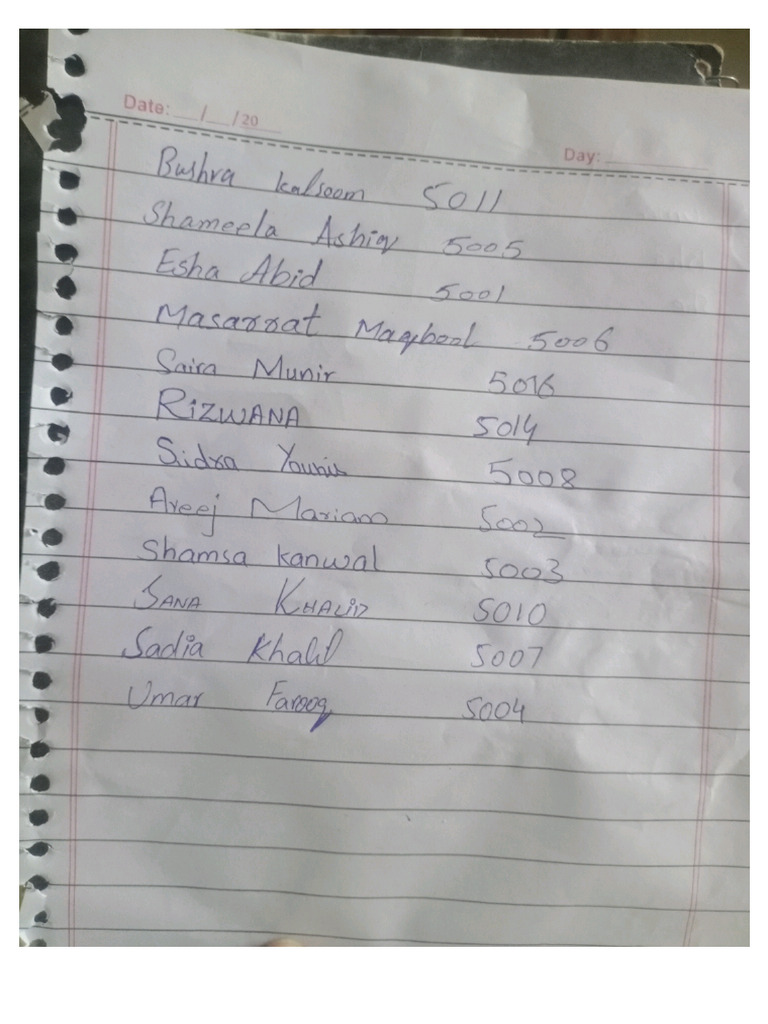 Date: __/__/20__
Day: ________
Bushra kalsoom 5011
Shameela Ashiq 5005
Esha Abid 5001
Masarrat Maqbool 5006
Saira Munir 5016
RIZWANA 5014
Sidra Younis 5008
Areej Mariam 5002
Shamsa kanwal 5003
SANA KHALID 5010
Sadia Khalil 5007
Umar Farooq 5004